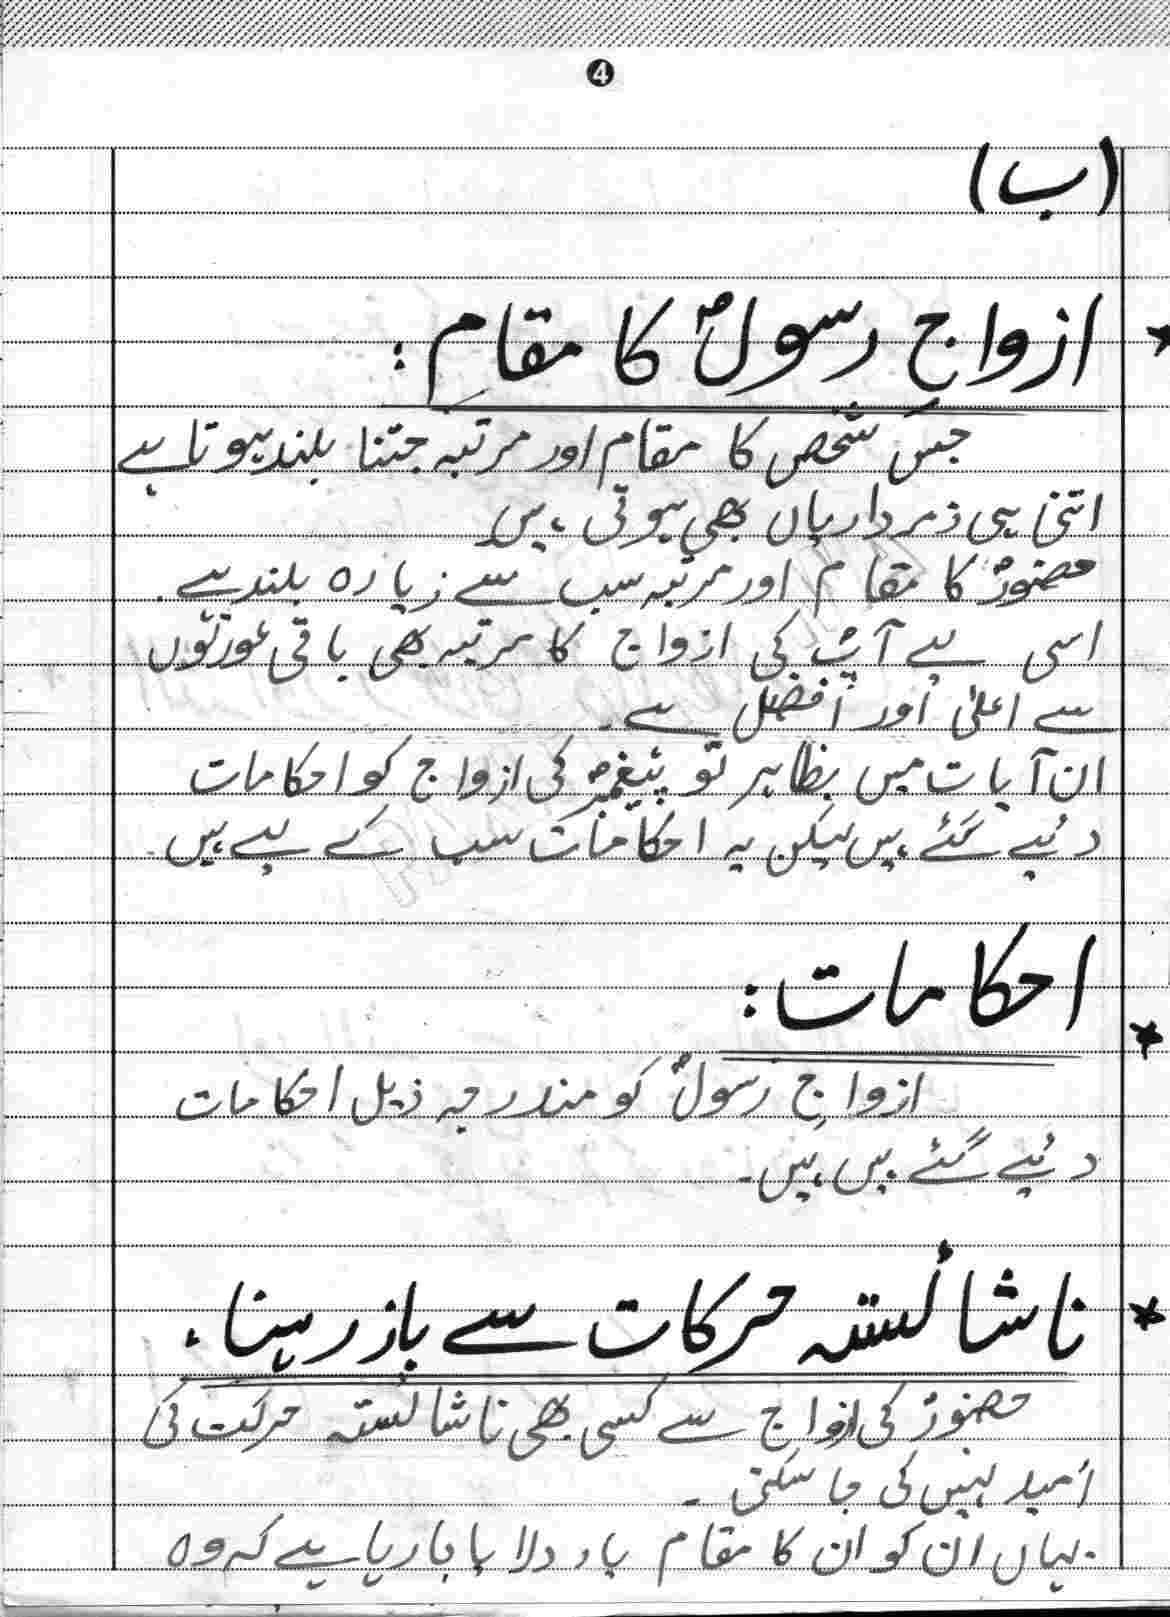 4
(ب)
* ازواج رسولؐ کا مقام:
جس شخص کا مقام اور مرتبہ جتنا بلند ہوتا ہے
اتنی ہی ذمہ داریاں بھی ہوتی ہیں
حضورؐ کا مقام اور مرتبہ سب سے زیادہ بلند ہے.
اسی لیے آپؐ کی ازواج کا مرتبہ بھی باقی عورتوں
سے اعلیٰ اور افضل ہے۔
ان آیات میں بظاہر تو پیغمبرؐ کی ازواج کو احکامات
دئیے گئے ہیں لیکن یہ احکامات سب کے لیے ہیں۔
* احکامات:
ازواج رسولؐ کو مندرجہ ذیل احکامات
دئیے گئے ہیں ہیں۔
* ناشائستہ حرکات سے باز رہنا:
حضورؐ کی ازواج سے کسی بھی ناشائستہ حرکت کی
اُمید نہیں کی جا سکتی۔
یہاں ان کو ان کا مقام یاد دلایا جا رہا ہے کہ وہ